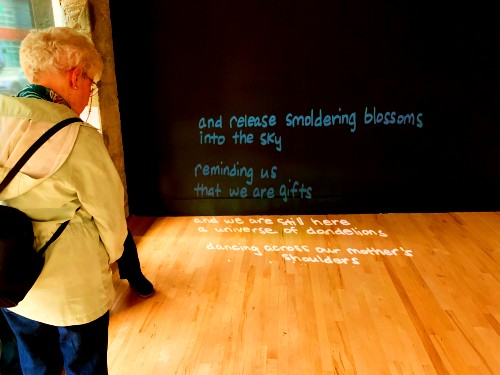 and release smoldering blossoms
into the sky
reminding us
that we are gifts
and we are still here
a universe of dandelions
dancing across our mother's
shoulders